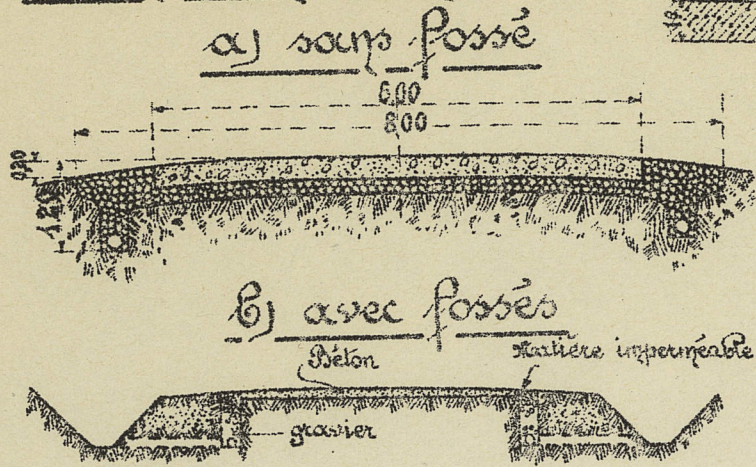 a) sans fossé
600
800
020
120
b) avec fossés
Béton
Matière imperméable
gravier